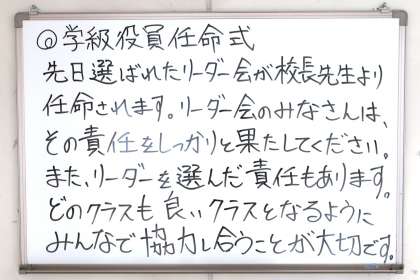 ◎学級役員任命式
先日選ばれたリーダー会が校長先生より
任命されます。リーダー会のみなさんは、
その責任をしっかりと果たしてください。
また、リーダーを選んだ責任もあります。
どのクラスも良いクラスとなるように
みんなで協力し合うことが大切です。